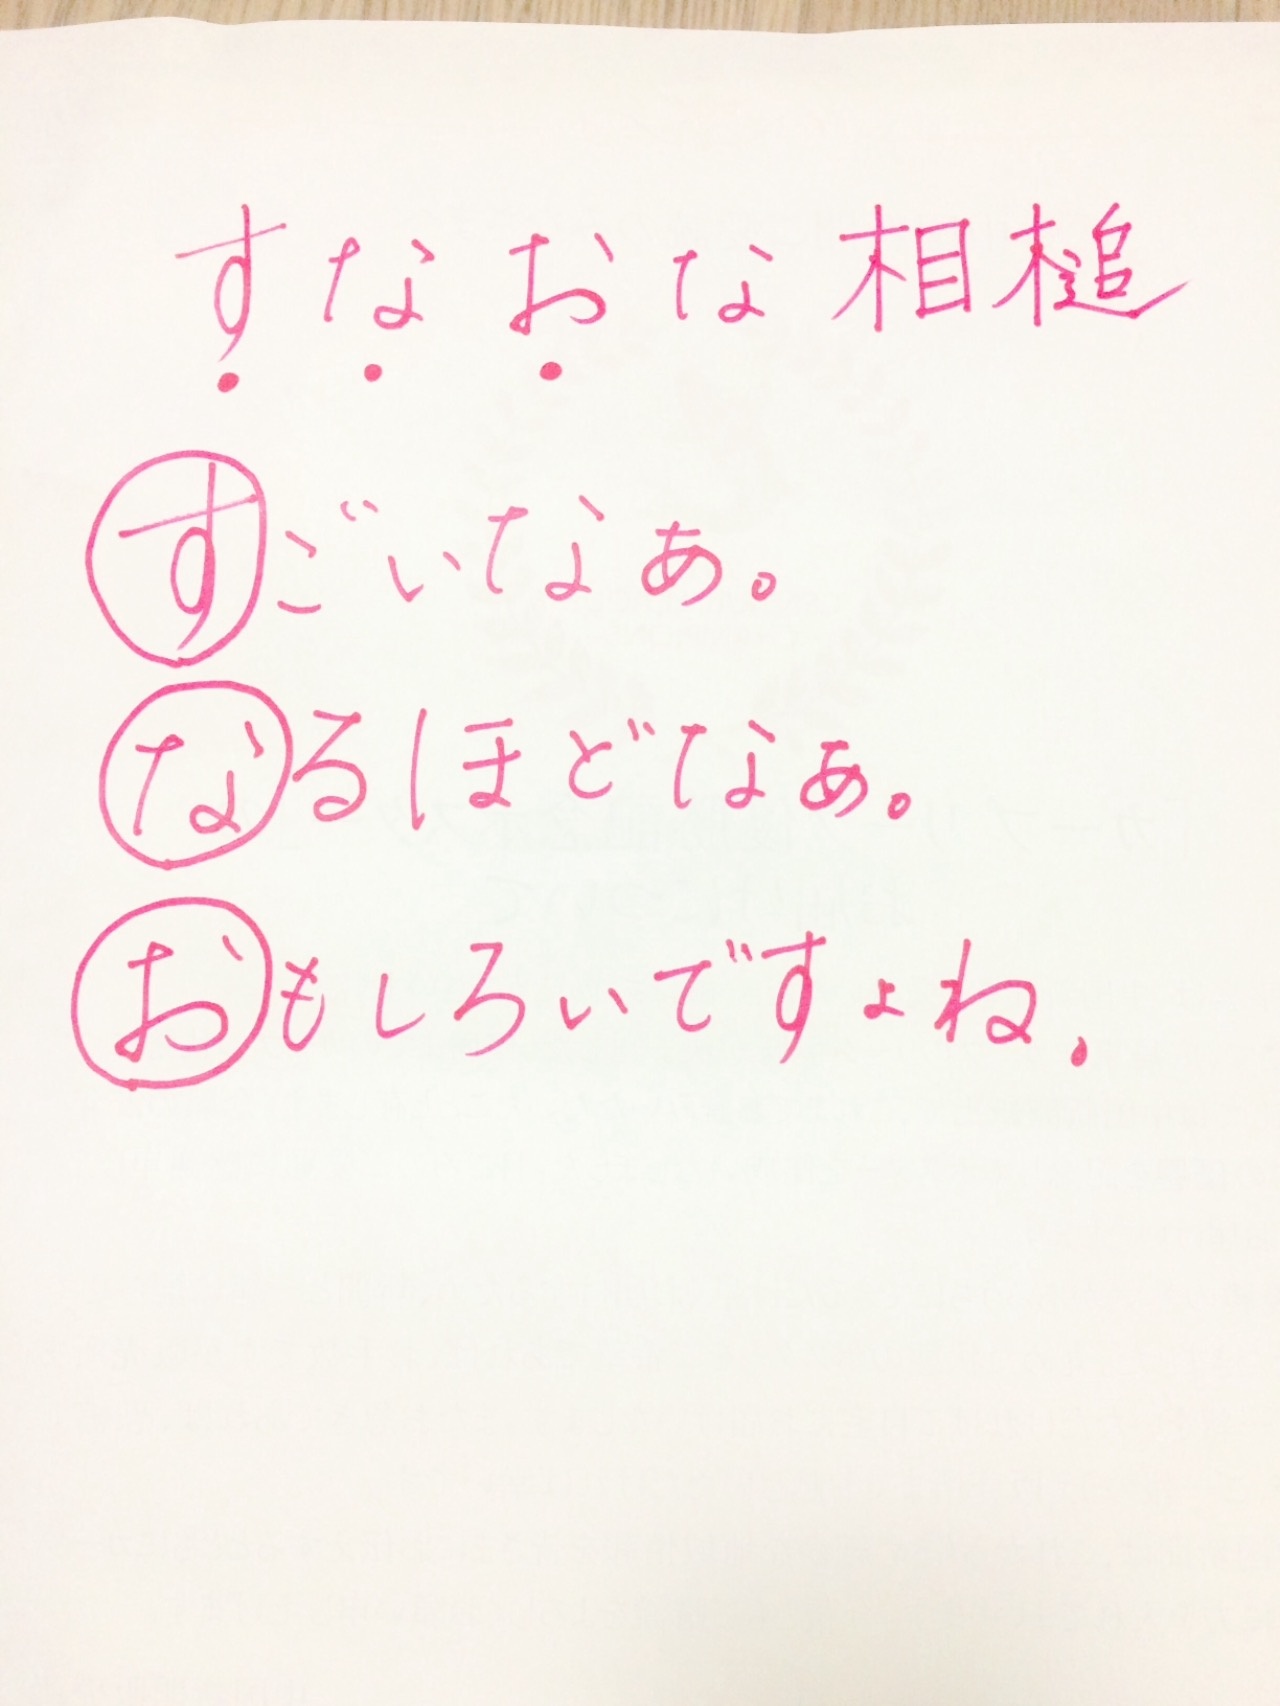 すなおな相槌
すごいなぁ。
なるほどなぁ。
おもしろいですょね.